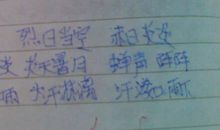 烈日当空 赤日炎炎
炎 炎天暑日 蝉声阵阵
雨 大汗淋漓 汗如雨